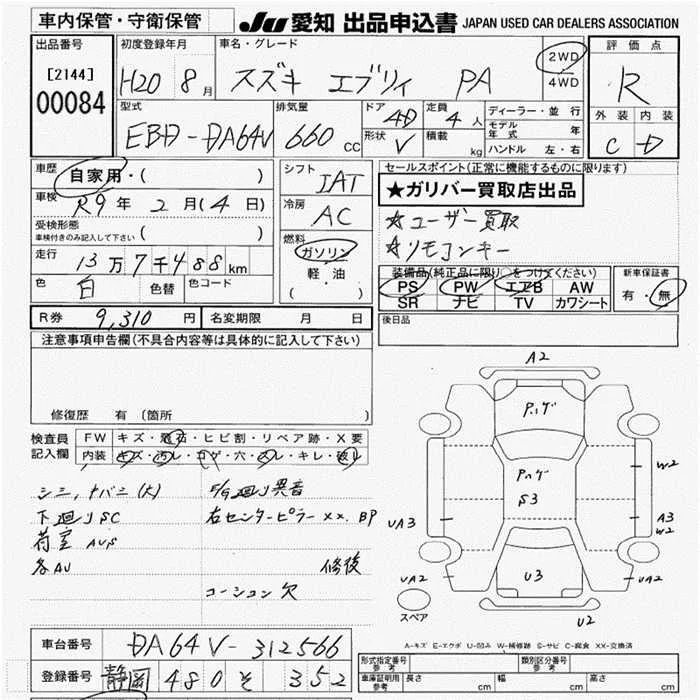 車内保管・守衛保管
JU 愛知 出品申込書 JAPAN USED CAR DEALERS ASSOCIATION
出品番号
[2144]
00084
初度登録年月
H20 8月
車名・グレード
スズキ エブリィ PA
2WD
4WD
評価点
R
外装 内装
C D
型式
EBD-DA64V
排気量
660 cc
ドア 4D
形状 V
定員 4人
積載 kg
ディーラー・並行
モデル年式 年
ハンドル 左・右
車歴
自家用・( )
車検
R9年 2月(4日)
受検形態
車検付きのみ記入して下さい ( )
走行
13万7千488km
色 白 色替 色コード
シフト
IAT
冷房
AC
燃料
ガソリン
軽・油
( )
セールスポイント(正常に機能するものに限ります)
★ガリバー買取店出品
☆ユーザー買取
☆リモコンキー
装備品(純正品に限り○をつけてください)
PS PW エアB AW
SR ナビ TV カワシート
新車保証書
有・無
R券 9,310円 名変期限 月 日
後日品
注意事項申告欄(不具合内容等は具体的に記入して下さい)
修復歴 有(箇所
検査員記入欄
FW キズ・飛石・ヒビ割・リペア跡・X要
内装 キズ・汚レ・コゲ・穴・スレ・キレ・破レ
シミ、ナバニ(大)
下廻りSC
荷室 AUS
各AU
F/G廻り異音
右センターピラーXX. BP
修後
コーション欠
A2
Pハゲ
Pハゲ
S3
U3
UA3
UA2
W2
A3
W2
UA2
U2
スペア
A-キズ E-エクボ U-凹み W-補修跡 S-サビ C-腐食 XX-交換済
車台番号 DA64V-312566
登録番号 静岡 480 そ 352
形式指定番号 参考
類別区分番号 参考
車庫証明用 参考 長さ cm 幅 cm 高さ cm